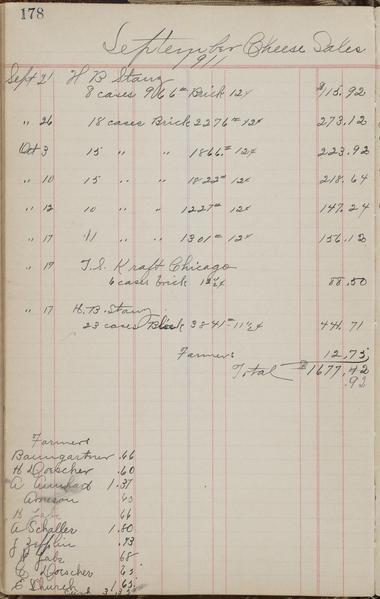 178
September Cheese Sales
1911
Sept 21 H B Stanz
8 cases 966# Brick 12¢ $115.92
" 26 18 cases Brick 2276# 12¢ 273.12
Oct 3 15 " " 1866.# 12¢ 223.92
" 10 15 " " 1822# 12¢ 218.64
" 12 10 " " 1227# 12¢ 147.24
" 17 11 " " 1301# 12¢ 156.12
" 17 J.L. Kraft Chicago
6 cases brick 88.50
" 17 H.B. Stanz
23 cases Brick 3841# 11½¢ 441.71
Farmers 12.75
Total $1677.42
.92
Farmers
Baumgartner .66
H Dorscher .60
A 1.37
Arneson
H
A Schaller 1.80
J Zepplin .93
Gabz 68
C Dorscher
E Church